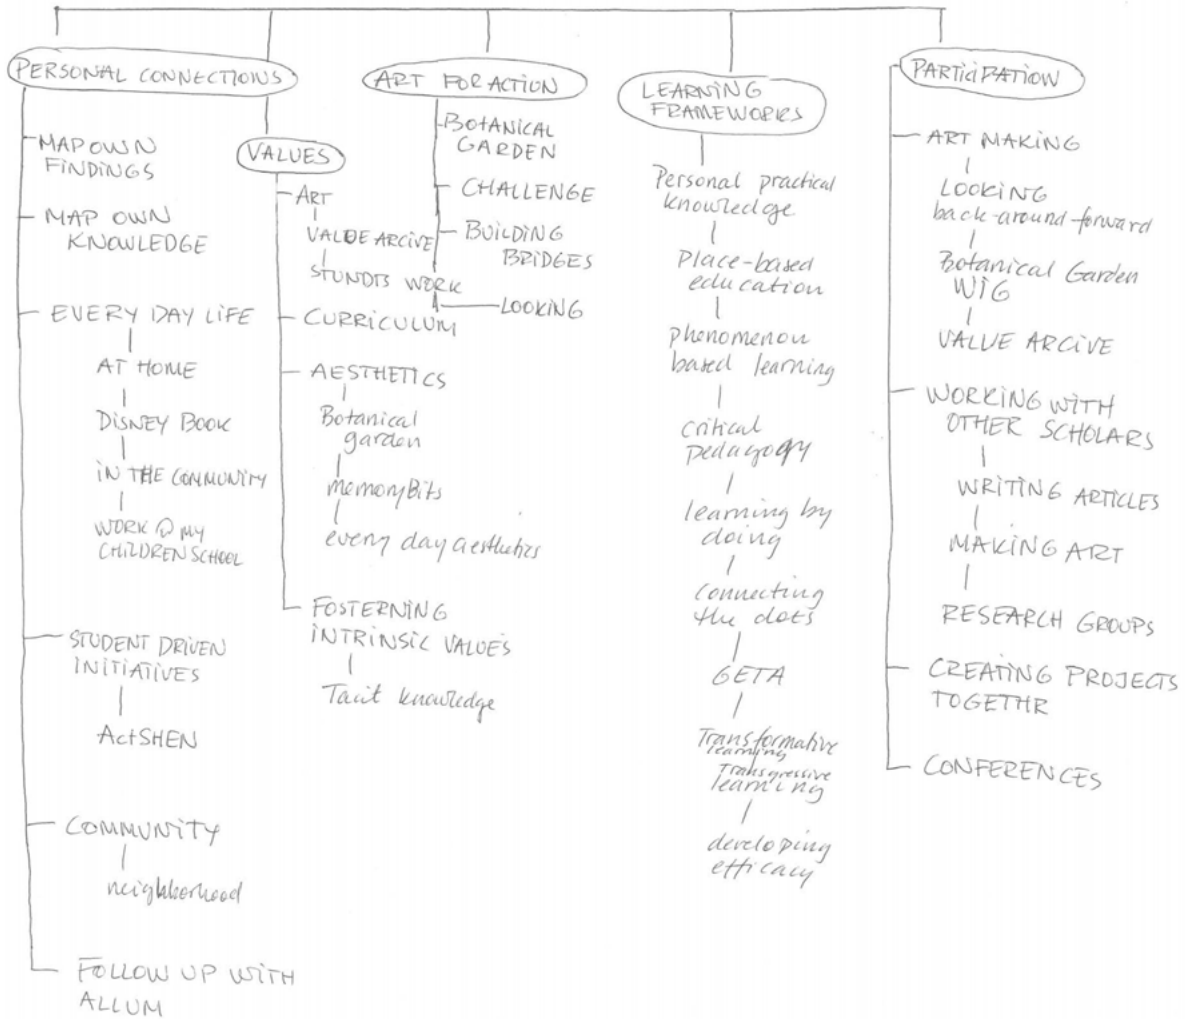 PERSONAL CONNECTIONS
MAP OWN
FINDINGS
MAP OWN
KNOWLEDGE
EVERY DAY LIFE
AT HOME
DISNEY BOOK
IN THE COMMUNITY
WORK @ MY
CHILDREN SCHOOL
STUDENT DRIVEN
INITIATIVES
ActSHEN
COMMUNITY
neighborhood
FOLLOW UP WITH
ALLUM
VALUES
ART
VALUE ARCIVE
STUNDTS WORK
CURRICULUM
AESTHETICS
Botanical
garden
memoryBits
every day aesthetics
FOSTERNING
INTRINSIC VALUES
Tacit knowledge
ART FOR ACTION
BOTANICAL
GARDEN
CHALLENGE
BUILDING
BRIDGES
LOOKING
LEARNING
FRAMEWORKS
Personal practical
knowledge
Place-based
education
phenomenon
based learning
critical
pedagogy
learning by
doing
connecting
the dots
GETA
Transformative
learning
Transgressive
learning
developing
efficacy
PARTICIPATION
ART MAKING
LOOKING
back-around-forward
Botanical Garden
WIG
VALUE ARCIVE
WORKING WITH
OTHER SCHOLARS
WRITING ARTICLES
MAKING ART
RESEARCH GROUPS
CREATING PROJECTS
TOGETHR
CONFERENCES